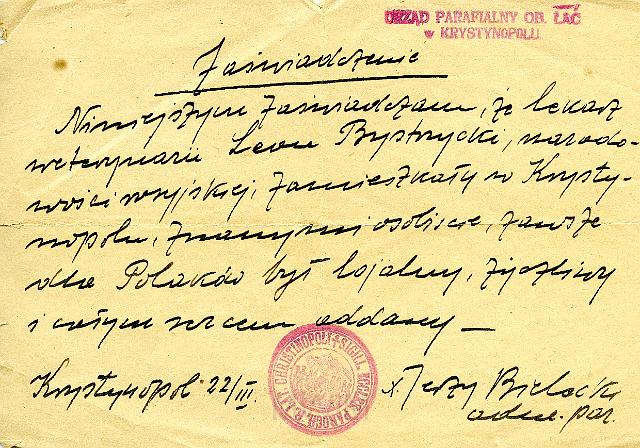 URZĄD PARAFIALNY OB. ŁAĆ
w KRYSTYNOPOLU
Zaświadczenie
Niniejszym zaświadczam, że lekarz
weterynarii Leon Bystrzycki, narodo-
wości rosyjskiej, zamieszkały w Krysty-
nopolu, znany mi osobiście, zawsze
dla Polaków był lojalny, życzliwy
i całym sercem oddany —
Krystynopol 22/III.
x. Jerzy Bielecki
adm. par.